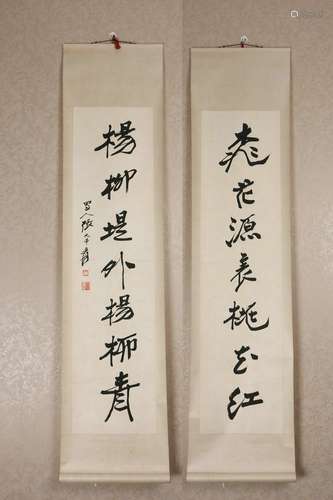 桃花源裏桃花紅
楊柳堤外楊柳青
蜀人張大千爰